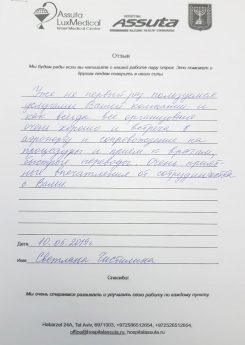 Assuta
LuxMedical
Israel Medical Center
HOSPITAL
ASSUTA
Отзыв
Мы будем рады если вы напишите о нашей работе пару строк. Это поможет и
другим людям поверить в наши силы.
Уже не первый раз пользуемся
услугами Вашей компании и
как всегда все организовано
очень хорошо и встреча в
аэропорту и сопровождение на
процедуры и приём к врачам,
быстрые переводы. Очень прият-
ные впечатления от сотрудничества
с Вами.
Дата: 10.05.2019г.
Имя: Светлана
Спасибо!
Мы очень стараемся развивать и улучшать свою работу по каждому пункту.
Habarzel 24A, Tel Aviv, 6971003, +972586512654, +972526512654,
office@hospitalassuta.ru, hospitalassuta.ru